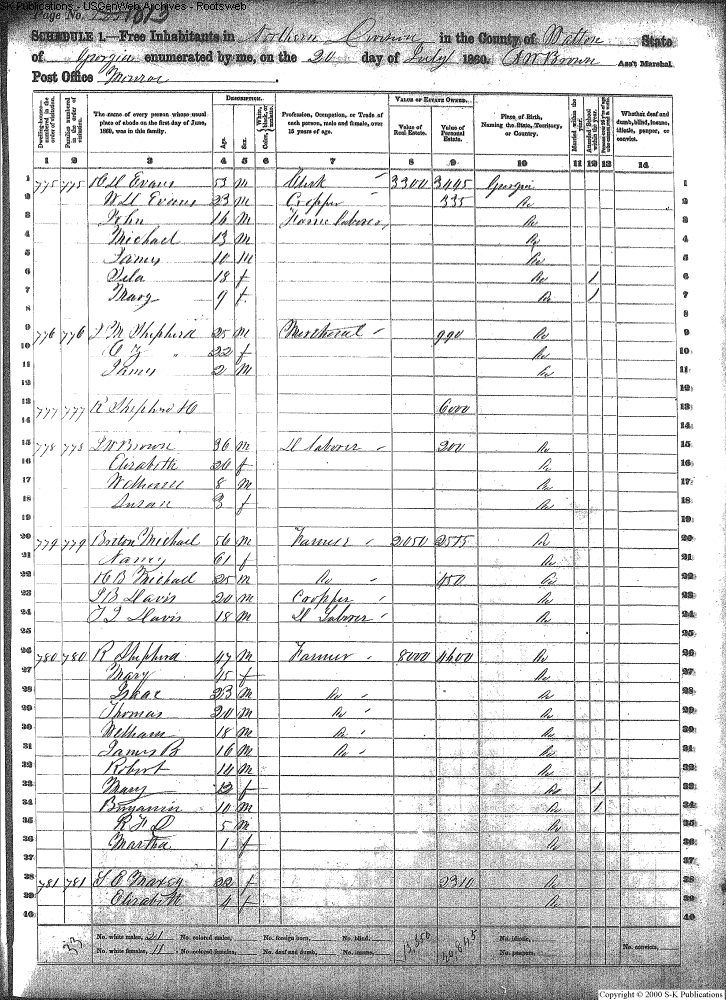 S-K Publications - USGenWeb Archives - Rootsweb
Page No.
SCHEDULE 1.—Free Inhabitants in Northern Division in the County of Walton State
of Georgia enumerated by me, on the 20 day of July 1860. A W Brown Ass't Marshal.
Post Office Monroe
Dwelling-houses—numbered in the order of visitation.
Families numbered in the order of visitation.
The name of every person whose usual place of abode on the first day of June, 1860, was in this family.
DESCRIPTION.
Age.
Sex.
Color, White, black, or mulatto.
Profession, Occupation, or Trade of each person, male and female, over 15 years of age.
VALUE OF ESTATE OWNED.
Value of Real Estate.
Value of Personal Estate.
Place of Birth, Naming the State, Territory, or Country.
Married within the year.
Attended School within the year.
Whether deaf and dumb, blind, insane, idiotic, pauper, or convict.
1 2 3 4 5 6 7 8 9 10 11 12 13 14
1 775 775 Evans 53 m Clerk 3300 3445 Georgia 1
2 Evans 23 m Cropper 335 Do 2
3 John 16 m Farm laborer Do 3
4 Michael 13 m Do 4
5 James 10 m Do 5
6 18 f Do 1 6
7 Mary 9 f Do 1 7
8 8
9 776 776 J M Shipherd 25 m Merchant 990 Do 9
10 22 f Do 10
11 James 2 m Do 11
12 12
13 777 777 Shipherd 6000 13
14 14
15 778 778 Brown 36 m D laborer 200 Do 15
16 Elizabeth 20 f Do 16
17 8 m Do 17
18 Susan 3 f Do 18
19 19
20 779 779 Britton Michael 56 m Farmer 2050 2515 Do 20
21 Nancy 61 f Do 21
22 H B Michael 25 m Do 450 Do 22
23 Davis 20 m Coopper Do 23
24 Davis 18 m D Laborer Do 24
25 25
26 780 780 R Shipherd 47 m Farmer 8000 4600 Do 26
27 Mary 45 f Do 27
28 Isaac 23 m Do Do 28
29 Thomas 20 m Do Do 29
30 Welham 18 m Do Do 30
31 James B 16 m Do Do 31
32 Robert 14 m Do 32
33 Mary 12 f Do 1 33
34 Benjamin 10 m Do 1 34
35 5 m Do 35
36 Martha 1 f Do 36
37
38 781 781 Maxey 22 f 2310 Do 38
39 Elizabeth 4 f Do 39
40 40
No. white males, 21 No. colored males, No. foreign born, No. blind, 13,350 No. idiotic,
No. white females, 11 No. colored females, No. deaf and dumb, No. insane, No. paupers, No. convicts,
33
Copyright © 2000 S-K Publications